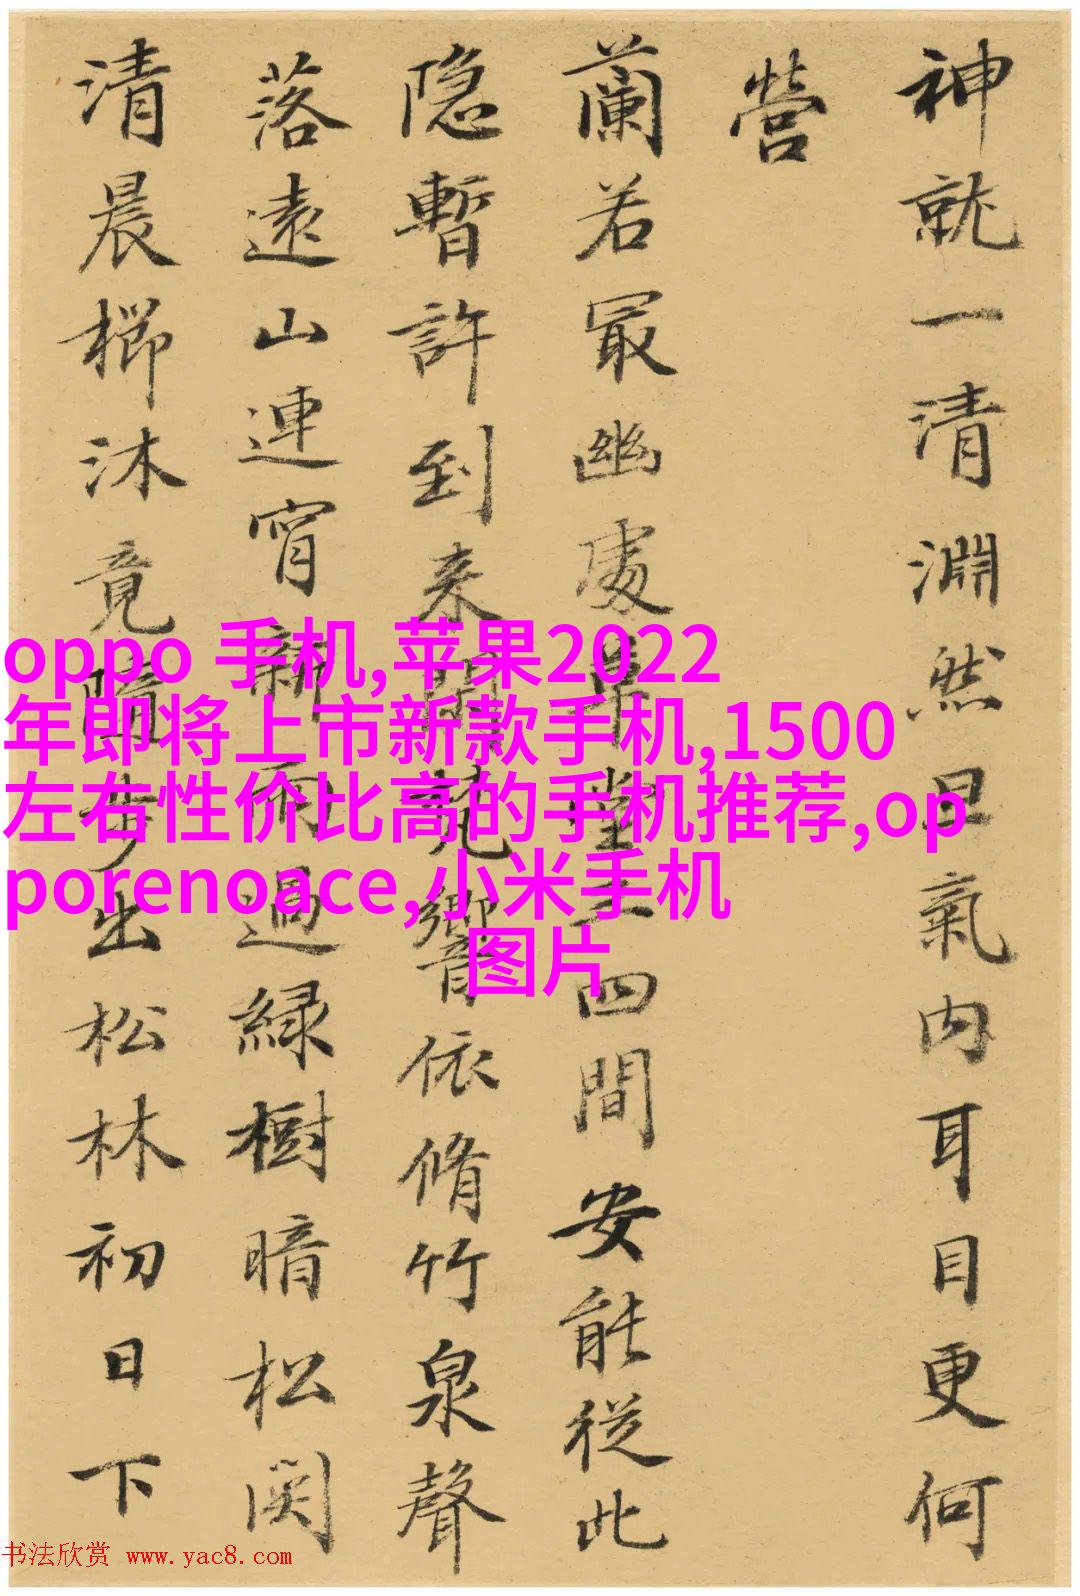 神就一清淵然旦氣内耳目更何
營
蘭若冣幽處草堂三四間安能從此
隐暫許到来閒梵響依脩竹泉聲
落遠山連宵新雨過緑樹暗松関
清晨櫛沐竟隨步出松林初日下
oppo 手机,苹果2022
年即将上市新款手机,1500
左右性价比高的手机推荐,op
porenoace,小米手机
图片
书法欣赏 www.yac8.com